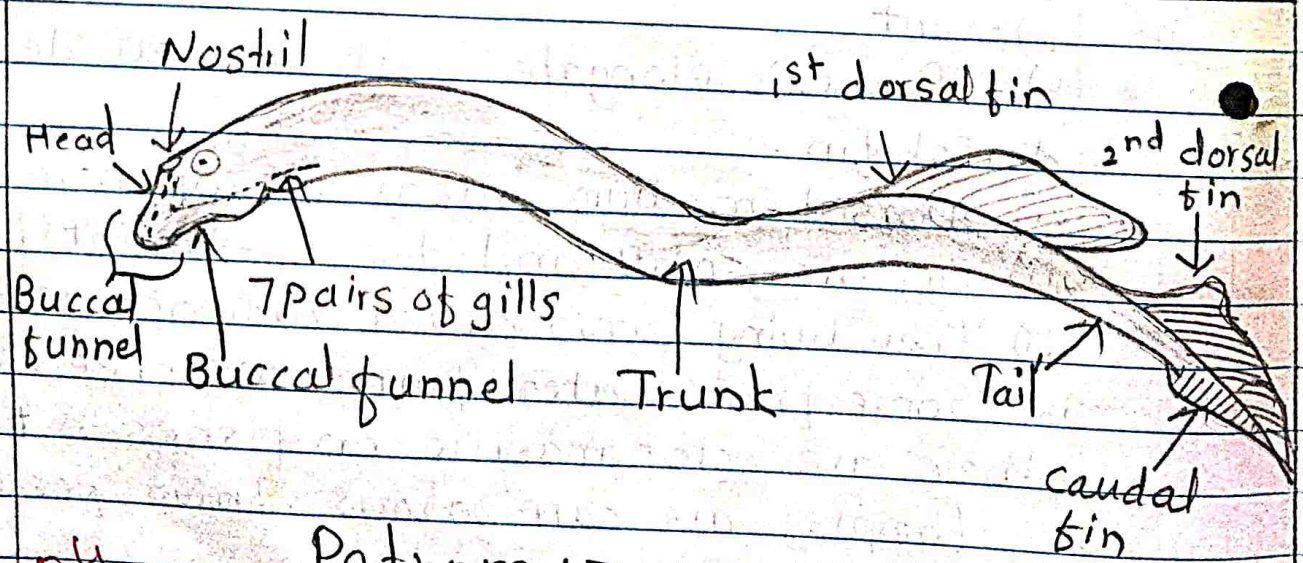 Nostril
1st dorsal fin
Head
2nd dorsal
fin
Buccal
funnel
7 pairs of gills
Buccal funnel
Trunk
Tail
Caudal
fin